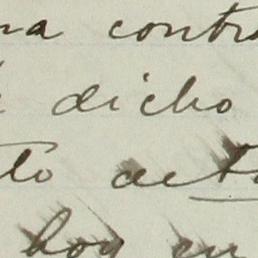 na contra
dicho
to acto
hoy en